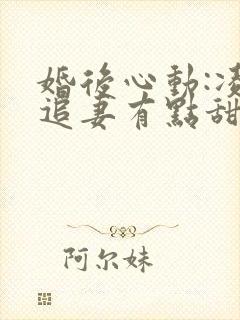 婚後心動:凌
追妻有點甜
阿尔妹